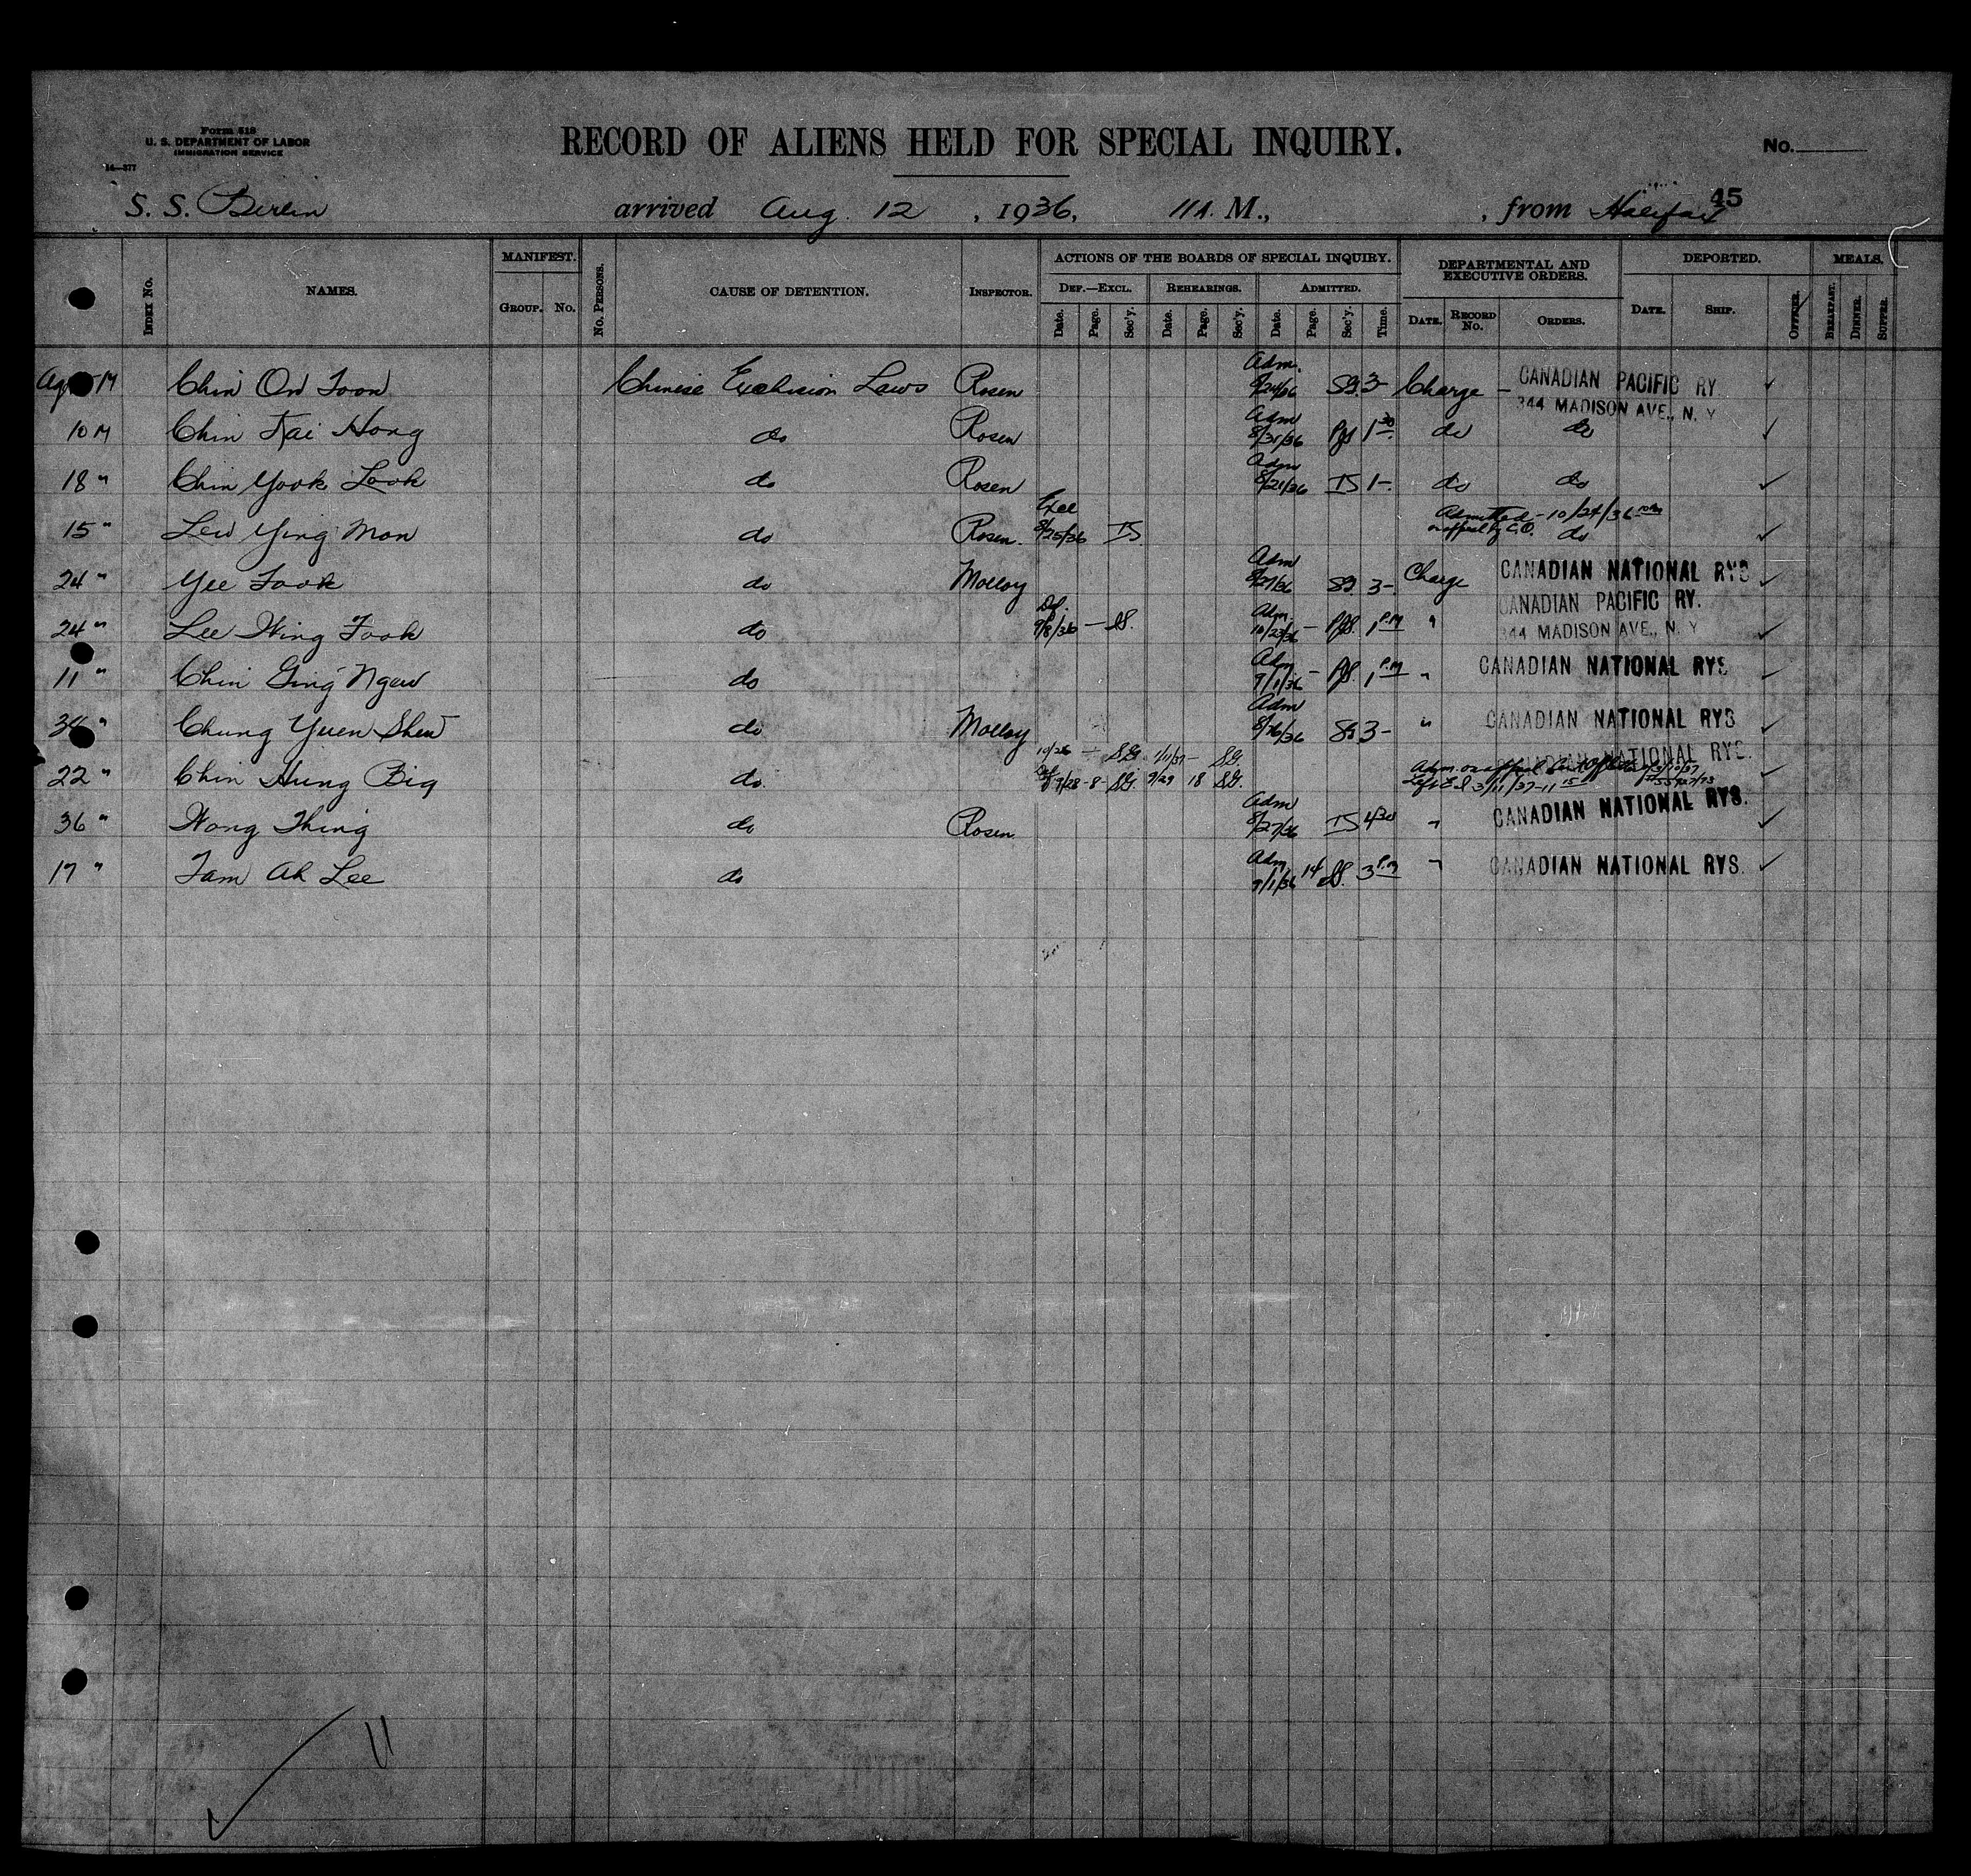 Form 518
U. S. DEPARTMENT OF LABOR
IMMIGRATION SERVICE
14—377
RECORD OF ALIENS HELD FOR SPECIAL INQUIRY.
No.
45
S. S. Berlin arrived Aug. 12, 1936, 11 A. M., from Halifax
INDEX No. NAMES. MANIFEST. GROUP. No. No. PERSONS. CAUSE OF DETENTION. INSPECTOR. ACTIONS OF THE BOARDS OF SPECIAL INQUIRY. DEPARTMENTAL AND EXECUTIVE ORDERS. DEPORTED. MEALS.
DEF.—EXCL. REHEARINGS. ADMITTED.
Date. Page. Sec'y. Date. Page. Sec'y. Date. Page. Sec'y. Time. DATE. RECORD No. ORDERS. DATE. SHIP. OFFICER. BREAKFAST. DINNER. SUPPER.
Chin On Toon Chinese Exclusion Laws Rosen Adm. 8/24/36 SG. 3- Charge - CANADIAN PACIFIC RY
344 MADISON AVE., N. Y
10 M Chin Kai Hong do Rosen Adm 8/31/36 1 30 do do
18 " Chin Yook Look do Rosen Adm 8/21/36 IS 1- do do
15 " Lew Ying Mon do Rosen. Excl 8/25/36 IS Admitted - 10/24/36 on appeal by C.O. do
24 " Yee Fook do Molloy Adm 8/27/36 SG 3- Charge CANADIAN NATIONAL RYS
24 " Lee Wing Fook do Def. 9/8/36 — Adm. 10/23/36 - 1 P.M " CANADIAN PACIFIC RY.
344 MADISON AVE., N. Y
11 " Chin Ging Ngew do Adm 9/1/36 - 1 P.M " CANADIAN NATIONAL RYS
" Chung Yuen Shew do Molloy Adm 8/26/36 SG 3- " CANADIAN NATIONAL RYS
22 " Chin Hung Big do. 10/26 - SG. 1/11/37 - SG. CANADIAN NATIONAL RYS.
9/28 - 8 - SG. 9/29 18 SG. Adm. on appeal
Left E I 3/11/37 - 11 15
36 " Wong Thing do Rosen Adm 8/27/36 IS 4 30 " CANADIAN NATIONAL RYS.
17 " Tam Ah Lee do Adm 9/1/36 14 3 P.M " CANADIAN NATIONAL RYS.
11